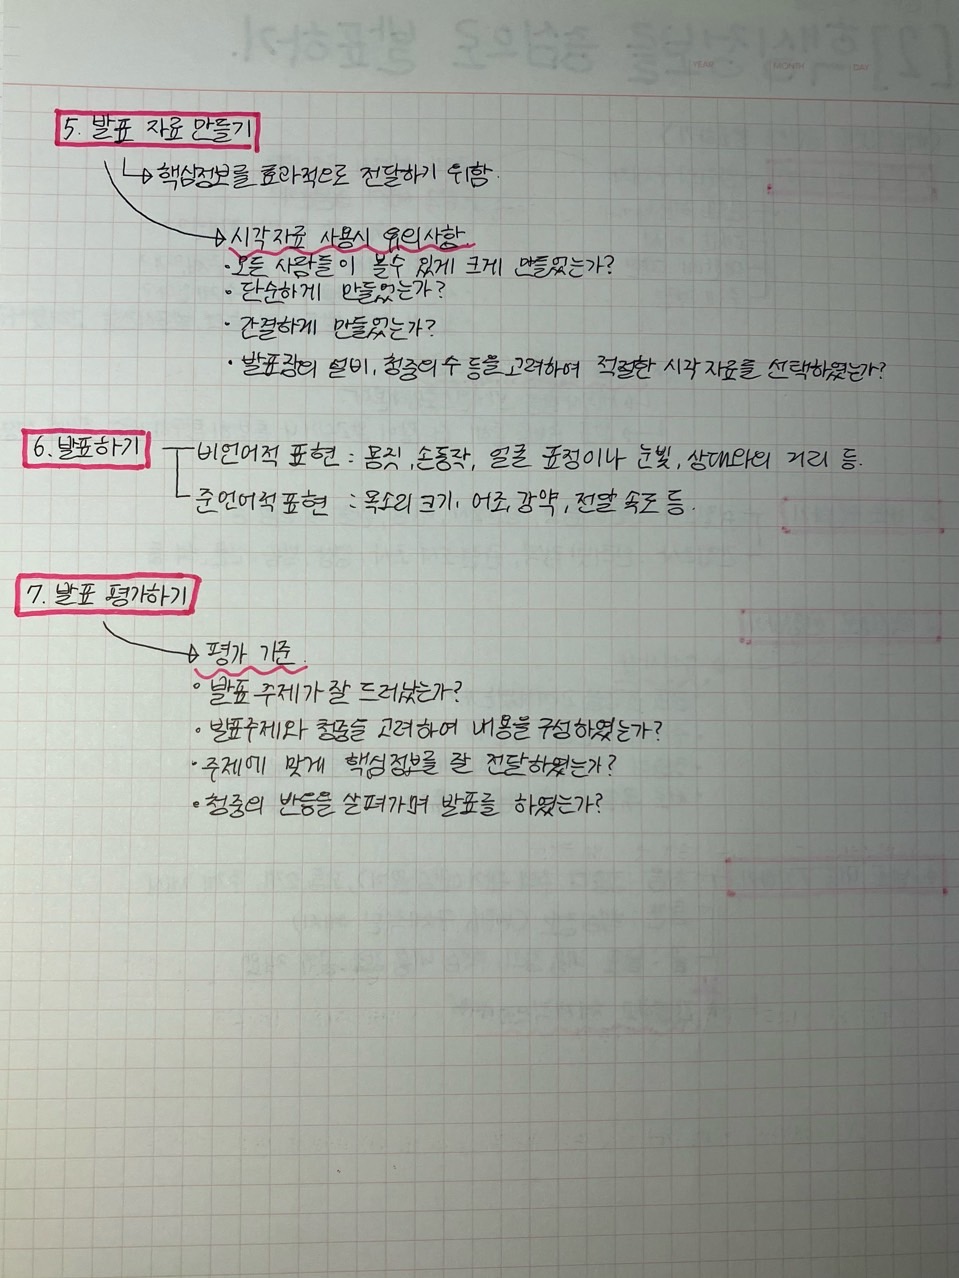 5. 발표 자료 만들기
핵심정보를 효과적으로 전달하기 위함.
시각자료 사용시 유의사항
· 모든 사람들이 볼수 있게 크게 만들었는가?
· 단순하게 만들었는가?
· 간결하게 만들었는가?
· 발표장의 설비, 청중의 수 등을 고려하여 적절한 시각 자료를 선택하였는가?
6. 발표하기 비언어적 표현 : 몸짓, 손동작, 얼굴 표정이나 눈빛, 상대와의 거리 등.
준언어적 표현 : 목소리 크기, 어조, 강약, 전달 속도 등.
7. 발표 평가하기
평가 기준.
· 발표 주제가 잘 드러났는가?
· 발표주제와 청중을 고려하여 내용을 구성하였는가?
· 주제에 맞게 핵심정보를 잘 전달하였는가?
· 청중의 반응을 살펴가며 발표를 하였는가?
[2] 핵심정보를 중심으로 발표하기.
YEAR MONTH DAY